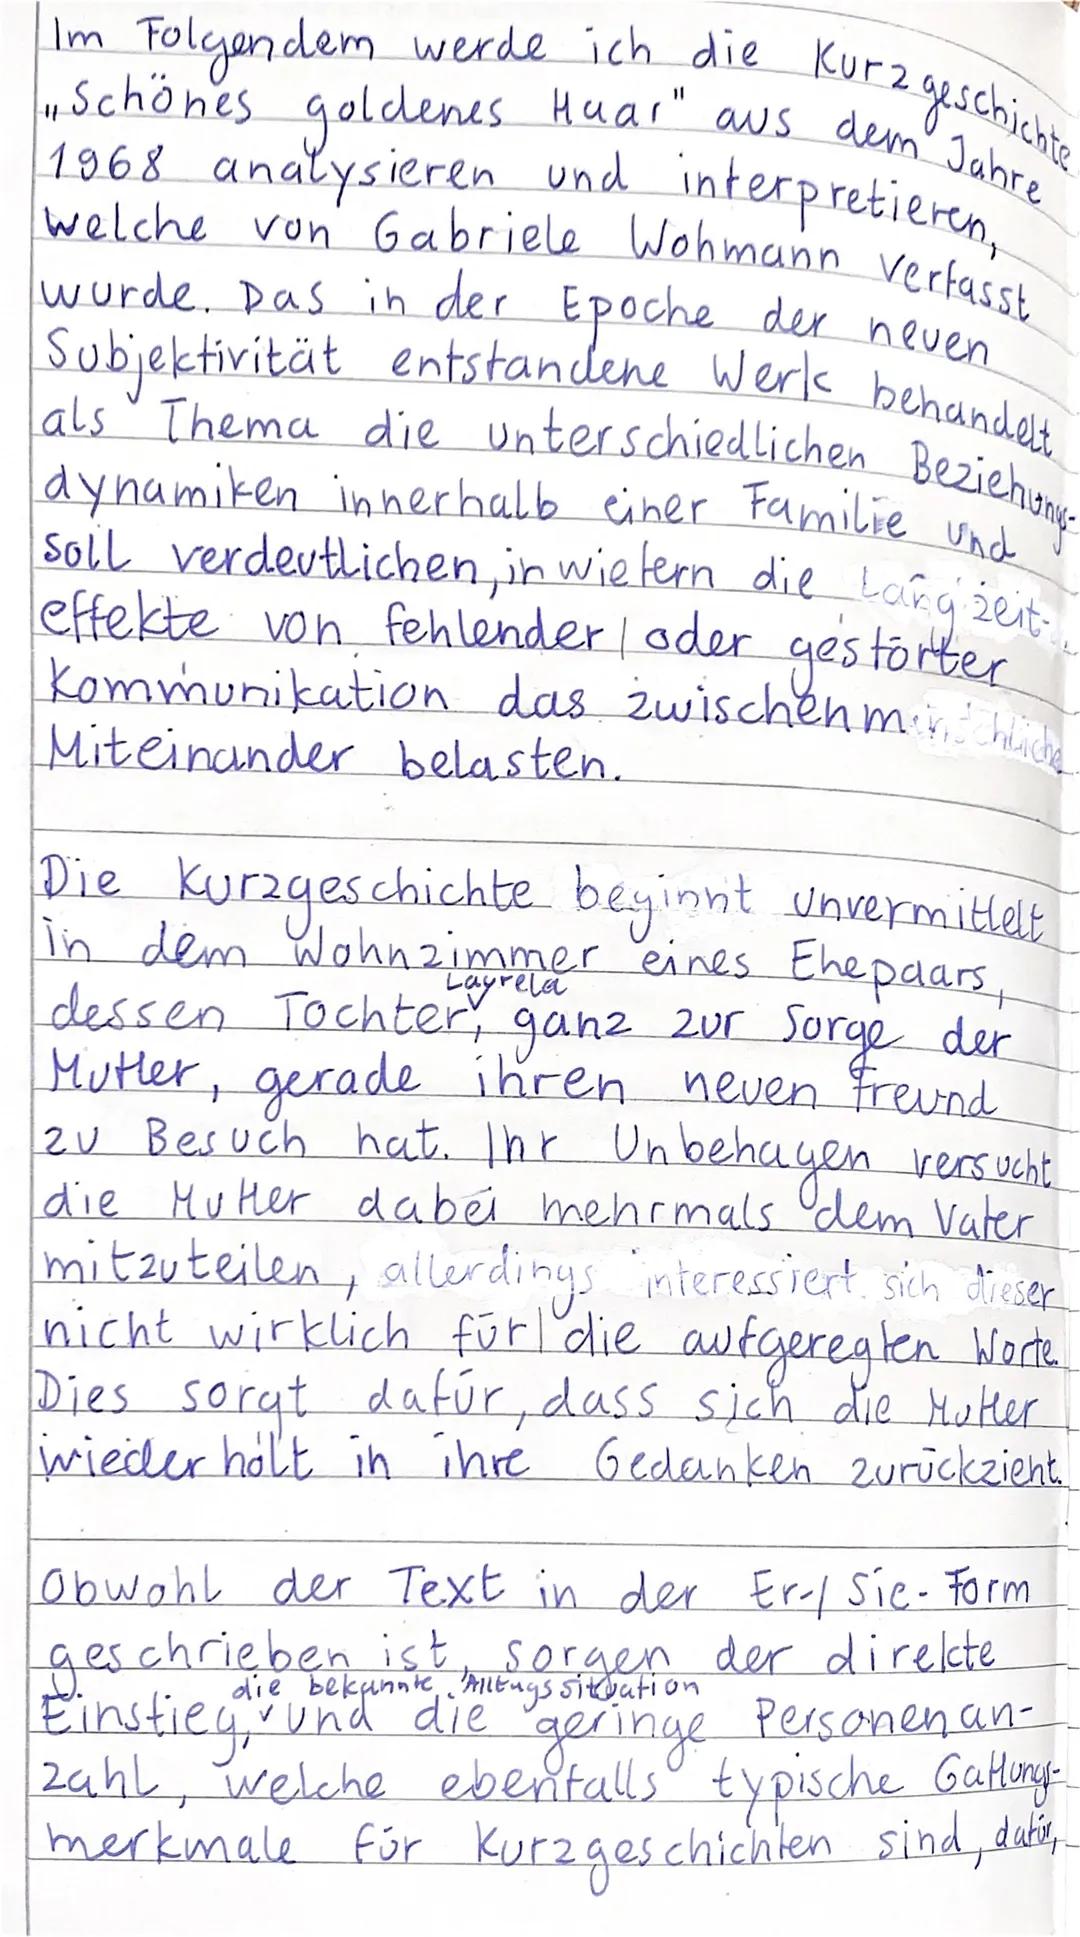 Im Folgendem werde ich die Kurzgeschichte
„Schönes goldenes Haar" aus dem Jahre
1968 analysieren und interpretieren,
welche von Gabriele Wohmann verfasst
wurde. Das in der Epoche der neuen
Subjektivität entstandene Werk behandelt
als Thema die unterschiedlichen Beziehungs-
dynamiken innerhalb einer Familie und
soll verdeutlichen, inwiefern die Langzeit-
effekte von fehlender / oder gestörter
Kommunikation das zwischenmenschliche
Miteinander belasten.
Die Kurzgeschichte beginnt unvermittelt
in dem Wohnzimmer eines Ehepaars,
Layrela
dessen Tochter, ganz zur Sorge der
Mutter, gerade ihren neuen Freund
zu Besuch hat. Ihr Unbehagen versucht
die Mutter dabei mehrmals dem Vater
mitzuteilen, allerdings interessiert sich dieser
nicht wirklich für die aufgeregten Worte.
Dies sorgt dafür, dass sich die Mutter
wiederholt in ihre Gedanken zurückzieht.
Obwohl der Text in der Er-/Sie-Form
geschrieben ist, sorgen der direkte
die bekannte Alltagssituation
Einstieg, und die geringe Personenan-
zahl, welche ebenfalls typische Gattungs-
merkmale für Kurzgeschichten sind, dafür,